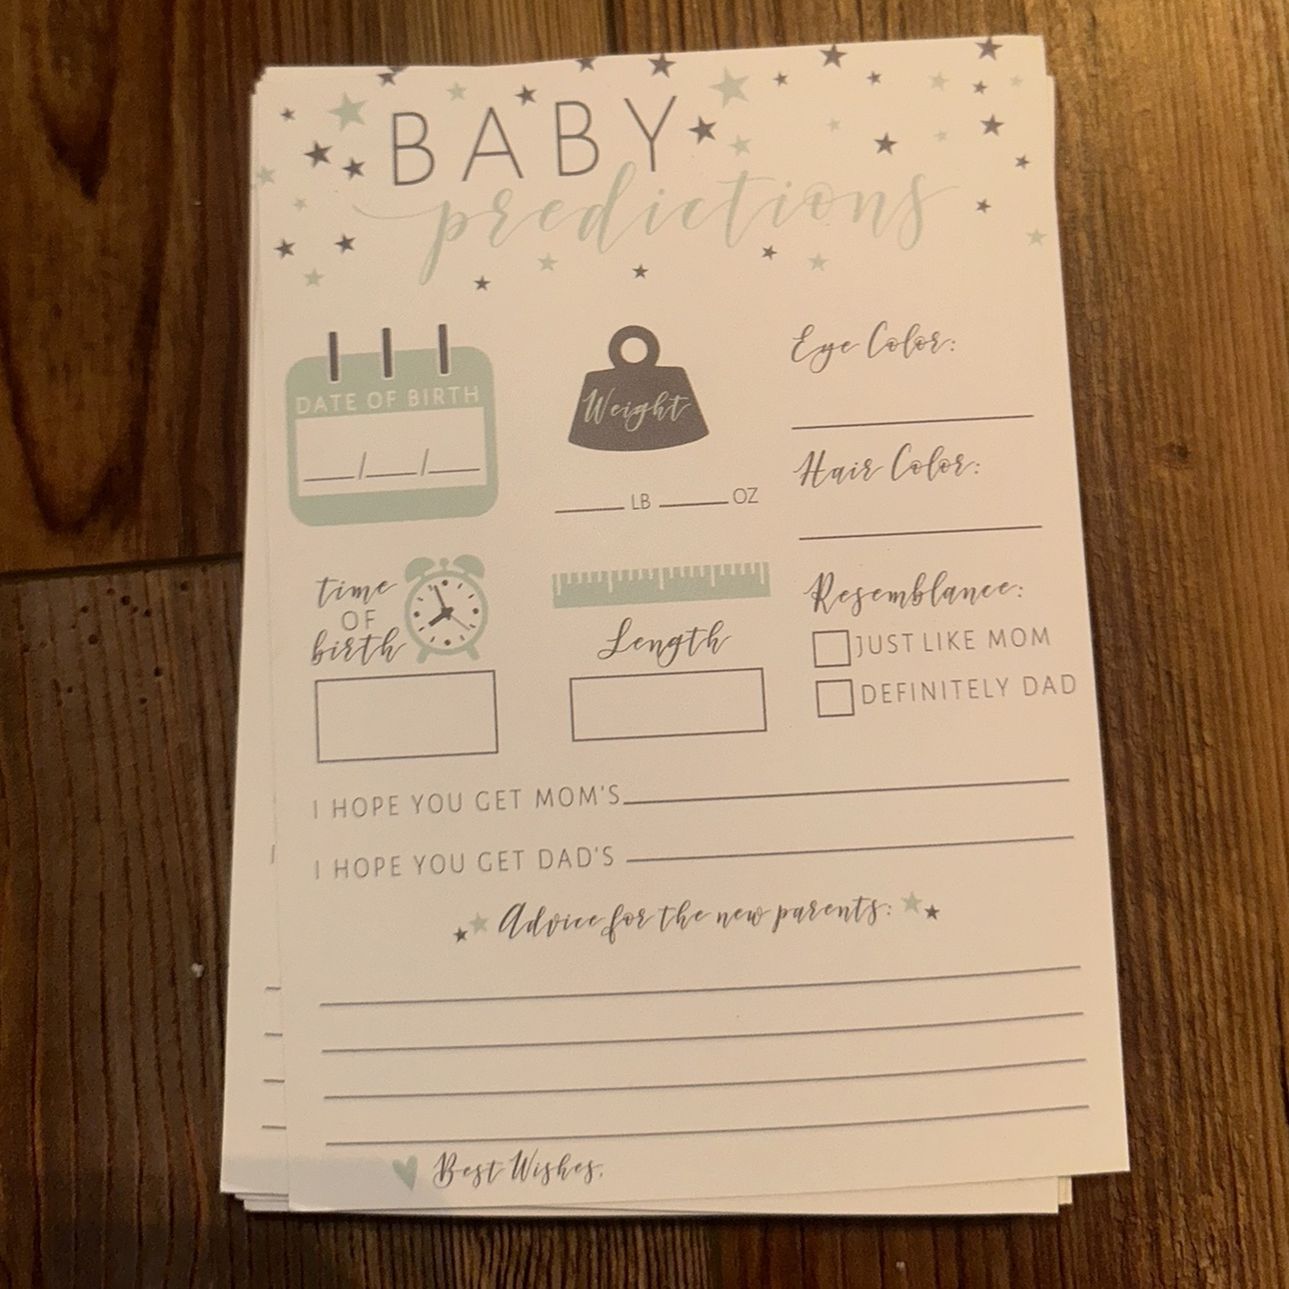 BABY
predictions
DATE OF BIRTH
__/__/__
Weight
____ LB ____ OZ
Eye Color:
Hair Color:
time
OF
birth
Length
Resemblance:
JUST LIKE MOM
DEFINITELY DAD
I HOPE YOU GET MOM'S
I HOPE YOU GET DAD'S
Advice for the new parents:
Best Wishes,